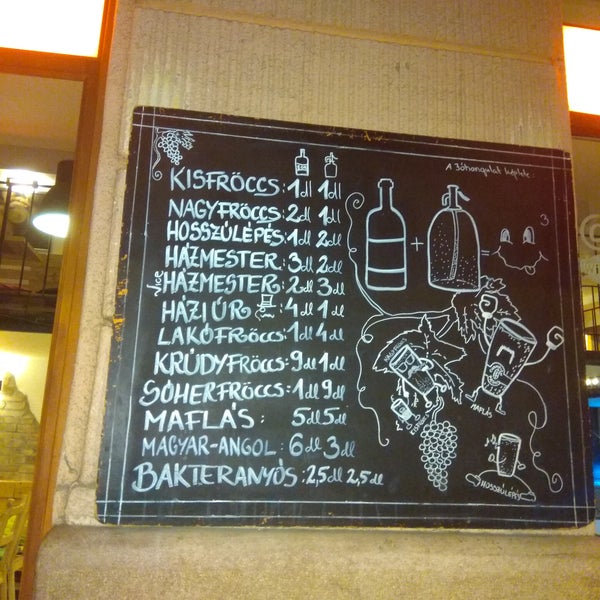 KISFRÖCCS: 1dl 1dl
NAGYFRÖCCS: 2dl 1dl
HOSSZÚLÉPÉS: 1dl 2dl
HÁZMESTER: 3dl 2dl
vice HÁZMESTER: 2dl 3dl
HÁZI ÚR 4dl 1dl
LAKÓFRÖCCS: 1dl 4dl
KRÚDYFRÖCCS: 9dl 1dl
SÓHERFRÖCCS: 1dl 9dl
MAFLÁS: 5dl 5dl
MAGYAR-ANGOL: 6dl 3dl
BAKTERANYÓS: 2,5dl 2,5dl
A Jóhangulat képlete:
+ =
3
MAFLÁS
HOSSZÚLÉPÉS